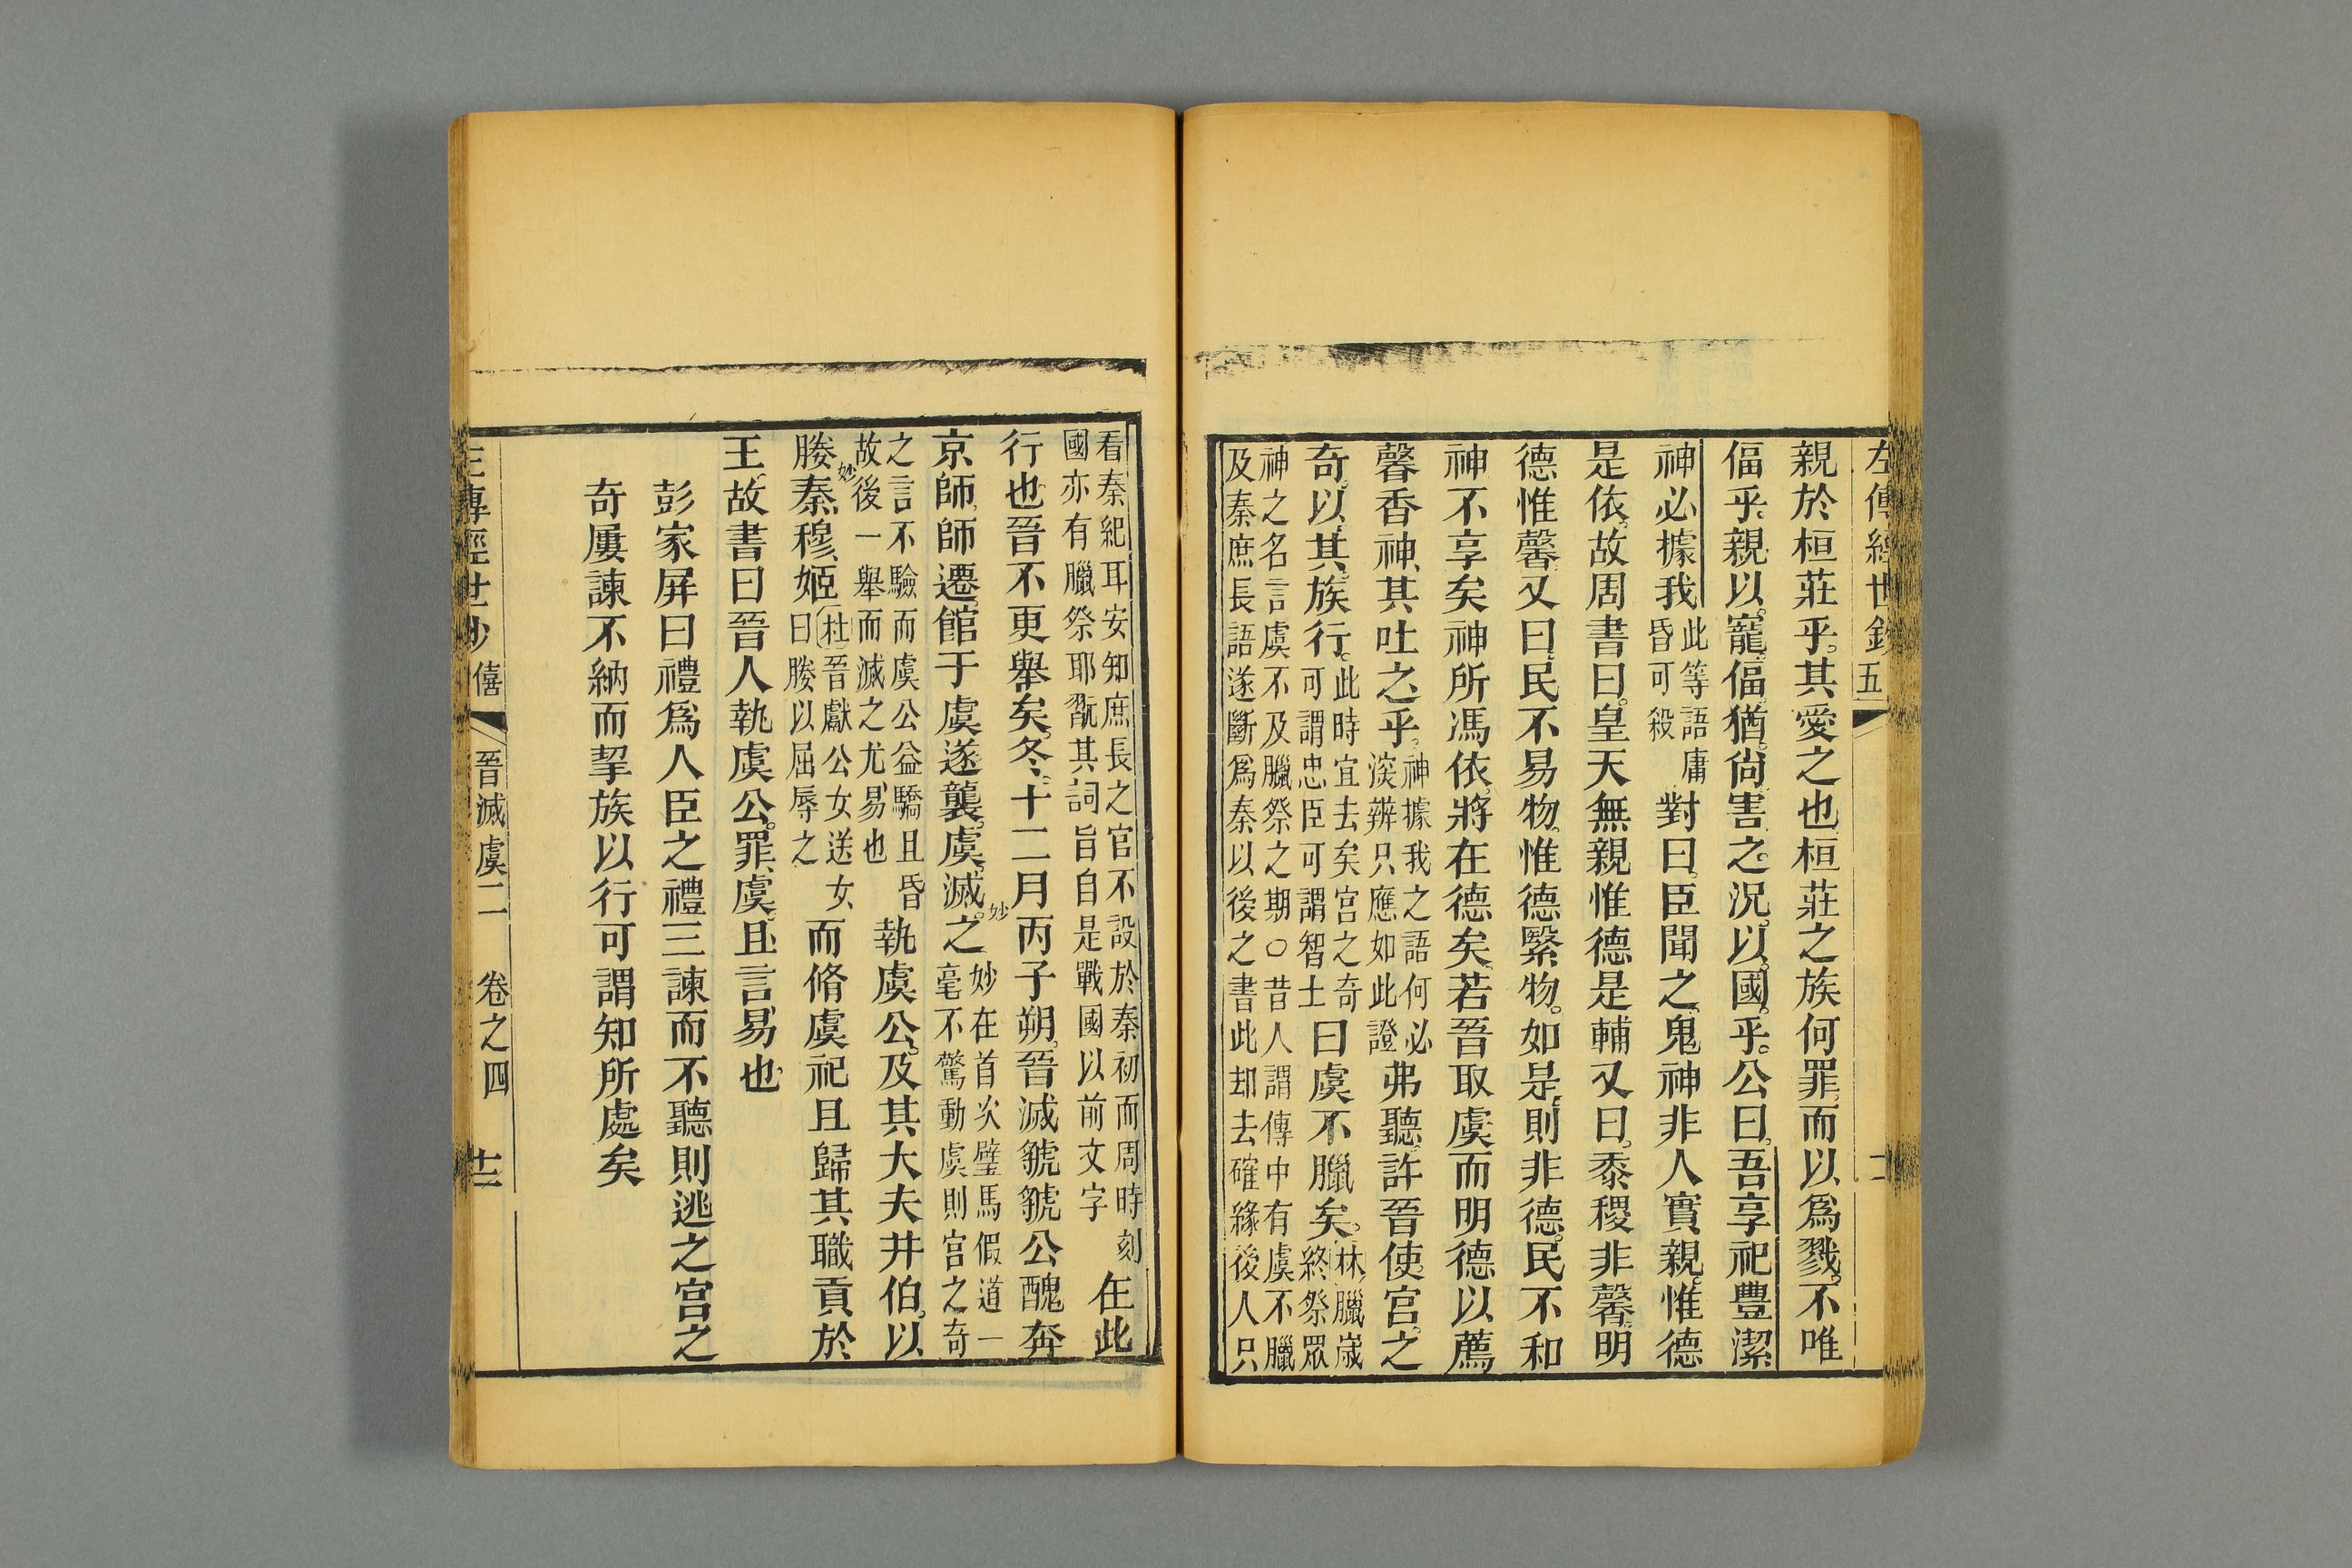 左傳經世鈔 五
親於桓莊乎其愛之也桓莊之族何罪而以爲戮不唯
偪乎親以寵偪猶尙害之況以國乎公曰吾享祀豐潔
神必據我
此等語庸
昏可殺
對曰臣聞之鬼神非人實親惟德
是依故周書曰皇天無親惟德是輔又曰黍稷非馨明
德惟馨又曰民不易物惟德繄物如是則非德民不和
神不享矣神所馮依將在德矣若晉取虞而明德以薦
馨香神其吐之乎
神據我之語何必
深辨只應如此證
弗聽許晉使宮之
奇以其族行
此時宜去矣宮之奇
可謂忠臣可謂智士
曰虞不臘矣
林臘歲
終祭眾
神之名言虞不及臘祭之期○昔人謂傳中有虞不臘
及秦庶長語遂斷爲秦以後之書此却去確緣後人只
看秦紀耳安知庶長之官不設於秦初而周時刻
國亦有臘祭耶翫其詞旨自是戰國以前文字
在此
行也晉不更舉矣冬十二月丙子朔晉滅虢虢公醜奔
京師師還館于虞遂襲虞滅之
妙
妙在首次璧馬假道一
毫不驚動虞則宮之奇
之言不驗而虞公益驕且昏
故後一舉而滅之尤易也
執虞公及其大夫井伯以
媵秦穆姬
妙
杜晉獻公女送女
曰媵以屈辱之
而脩虞祀且歸其職貢於
王故書曰晉人執虞公罪虞且言易也
彭家屏曰禮爲人臣之禮三諫而不聽則逃之宮之
奇屢諫不納而挈族以行可謂知所處矣
左傳經世鈔 僖 晉滅虞二 卷之四 十二